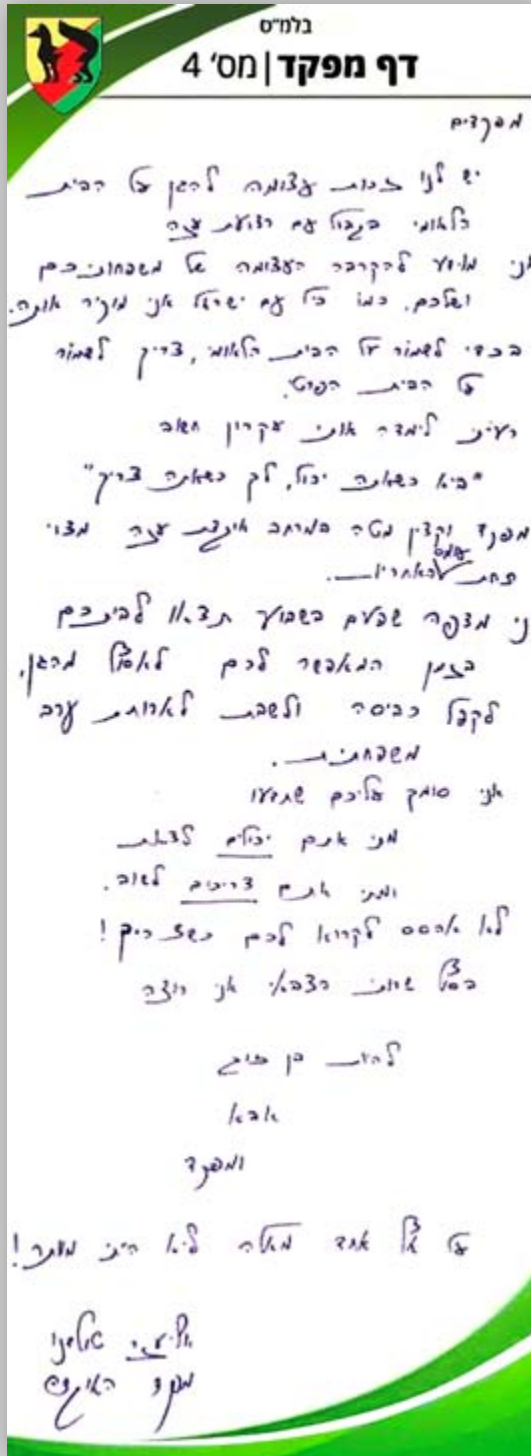 בלמ"ס
דף מפקד | מס' 4
מפקדים
יש לנו זכות עצומה להגן על הבית
הלאומי בגבול עם רצועת עזה
אני מודע להקרבה העצומה של משפחותיכם
ושלכם. כמו כל עם ישראל אני מוקיר אותה.
בכדי לשמור על הבית הלאומי, צריך לשמור
על הבית הפרטי.
רעיתי לימדה אותי עקרון חשוב
"בוא כשאתה יכול, לך כשאתה צריך"
מפקד וקצין מטה במרחב אוגדת עזה מצוי
תחת עומס ואחריות.
אני מצפה שפעם בשבוע תצאו לביתכם
בזמן המאפשר לכם לאסוף מהגן,
לקפל כביסה ולשבת לארוחת ערב
משפחתית.
אני סומך עליכם שתדעו
מתי אתם יכולים לצאת
ומתי אתם צריכים לשוב.
לא אהסס לקרוא לכם כשצריך!
בסוף שרותי הצבאי אני רוצה
להיות בן זוג
אבא
ומפקד
על אף אחד מאלה לא הייתי מוותר!
מפקד האוגדה